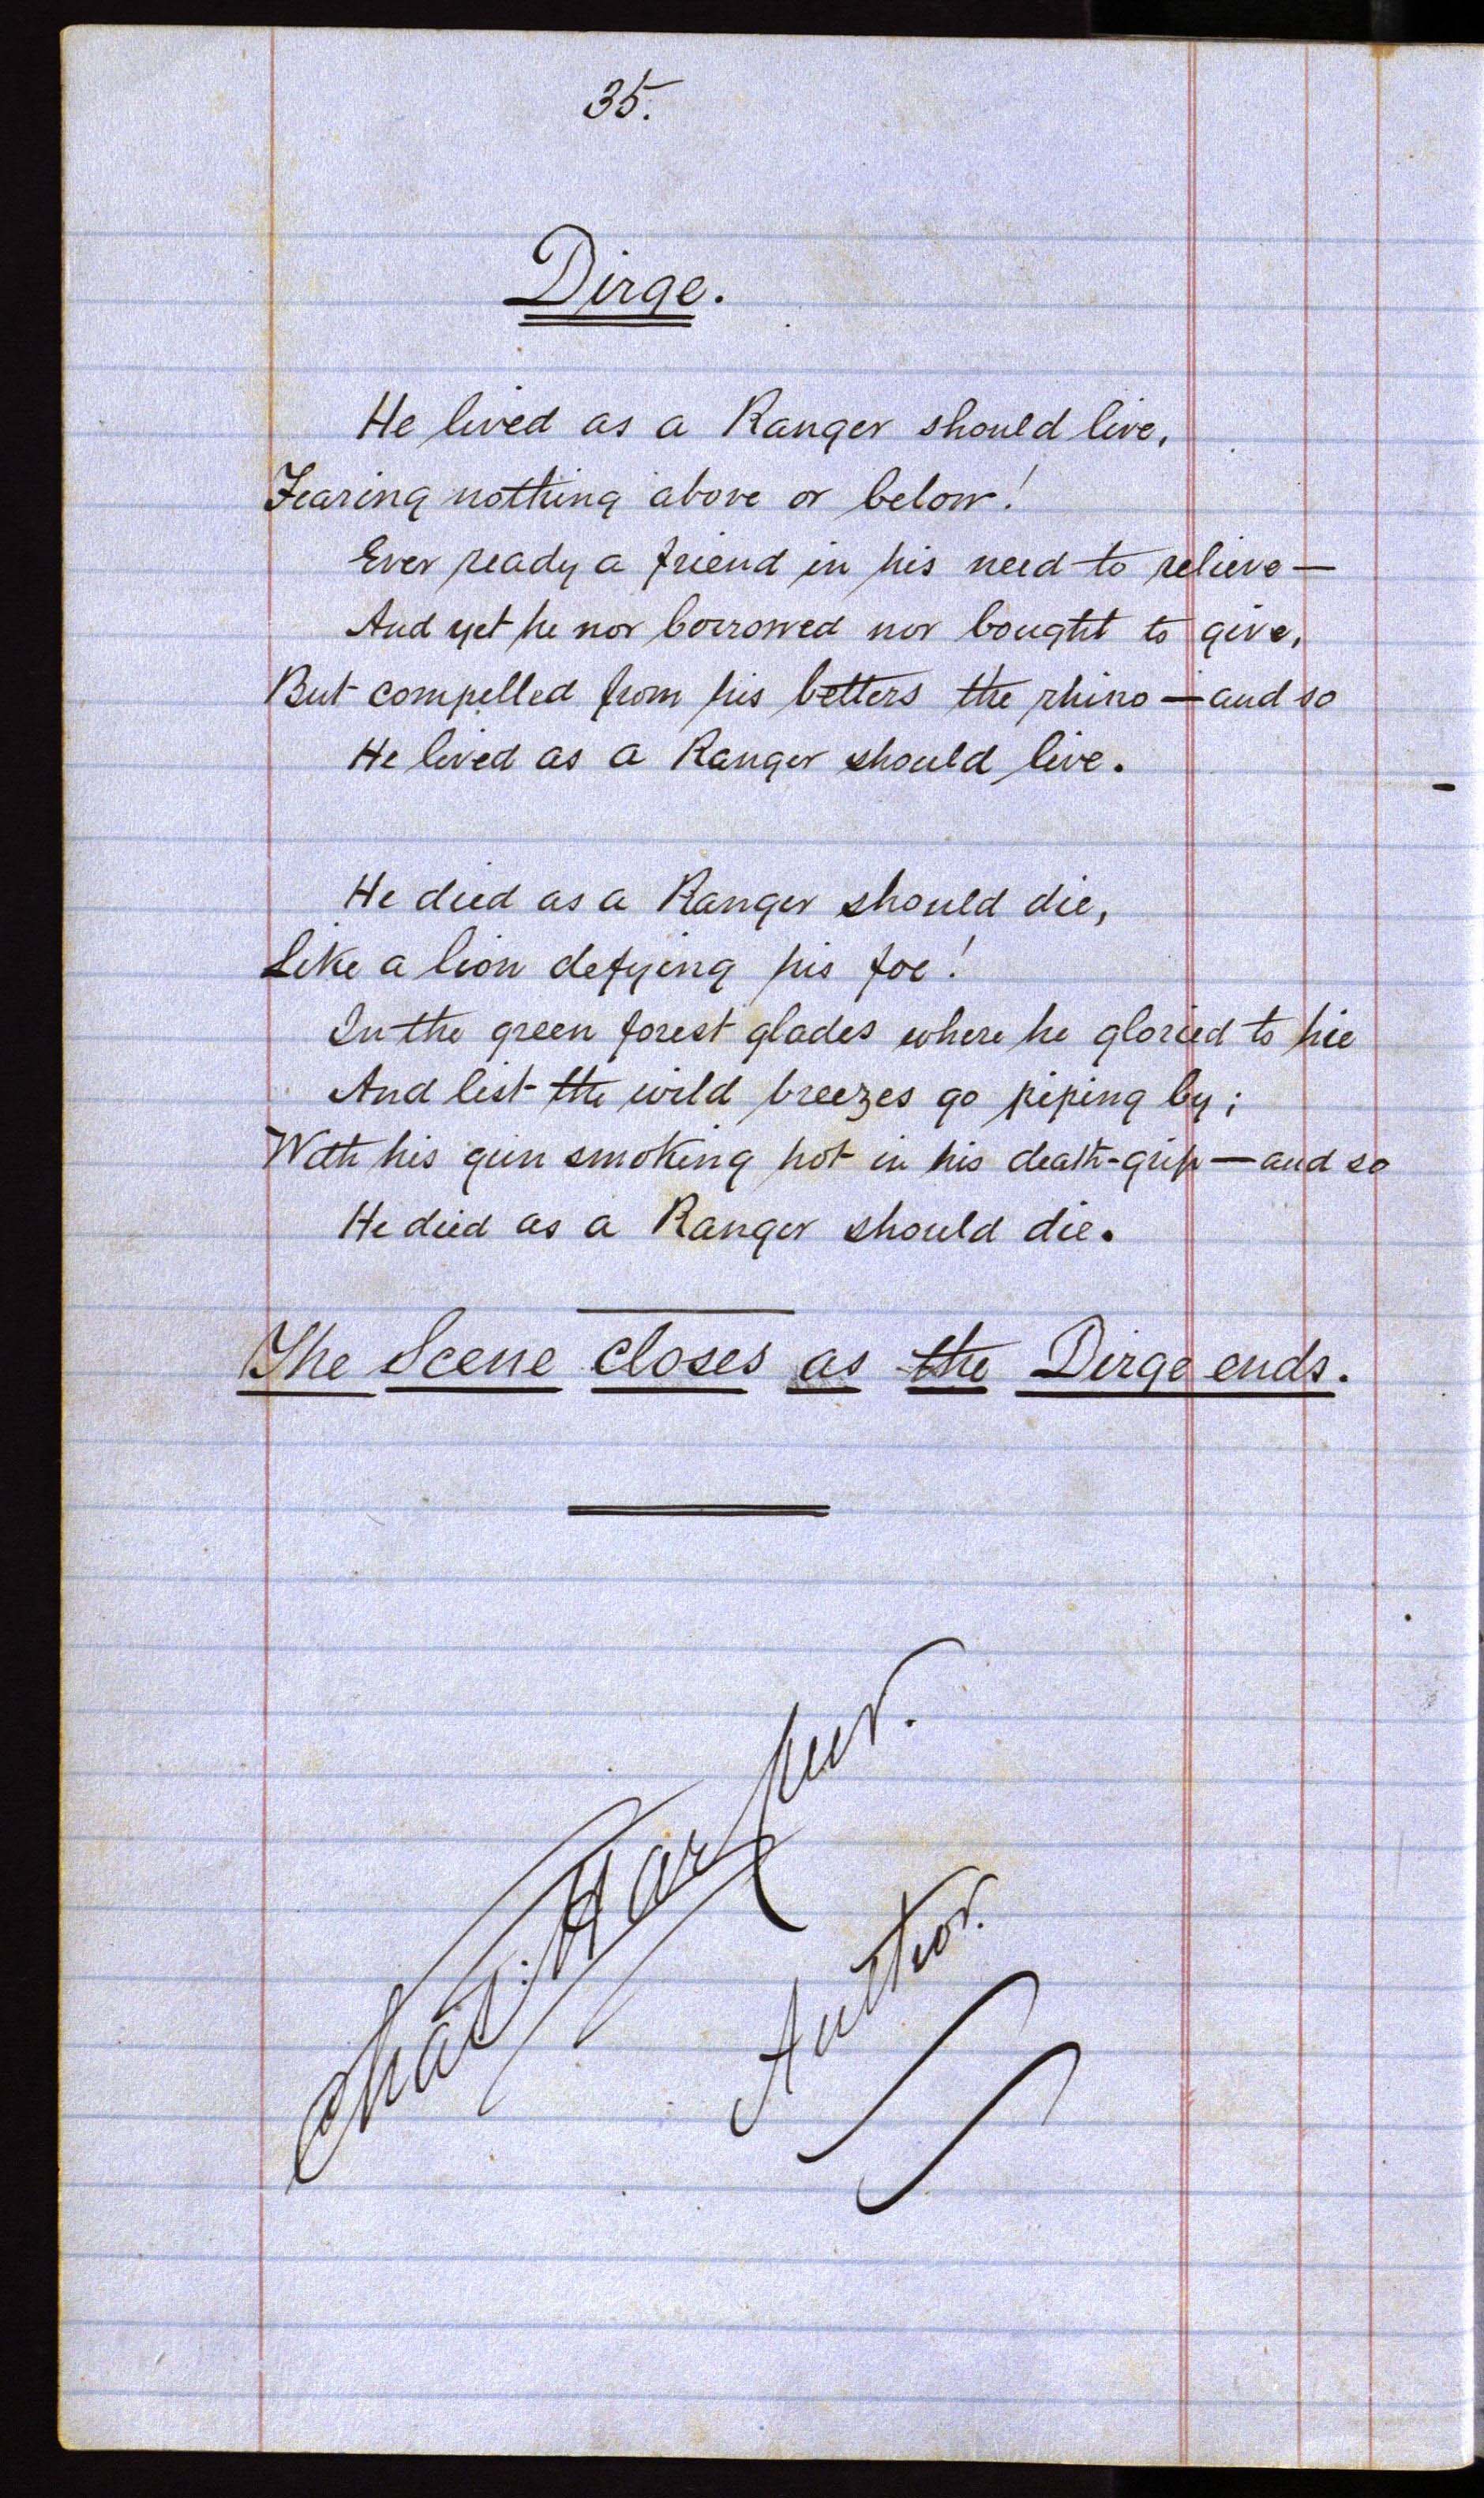 35.
Dirge.
He lived as a Ranger should live,
Fearing nothing above or below!
Ever ready a friend in his need to relieve—
And yet he nor borrowed nor bought to give,
But compelled from his betters the rhino—and so
He lived as a Ranger should live.
He died as a Ranger should die,
Like a lion defying his foe!
In the green forest glades where he gloried to hie
And list the wild breezes go piping by;
With his gun smoking hot in his death-grip—and so
He died as a Ranger should die.
The Scene closes as the Dirge ends.
Chas. Harpur.
Author.